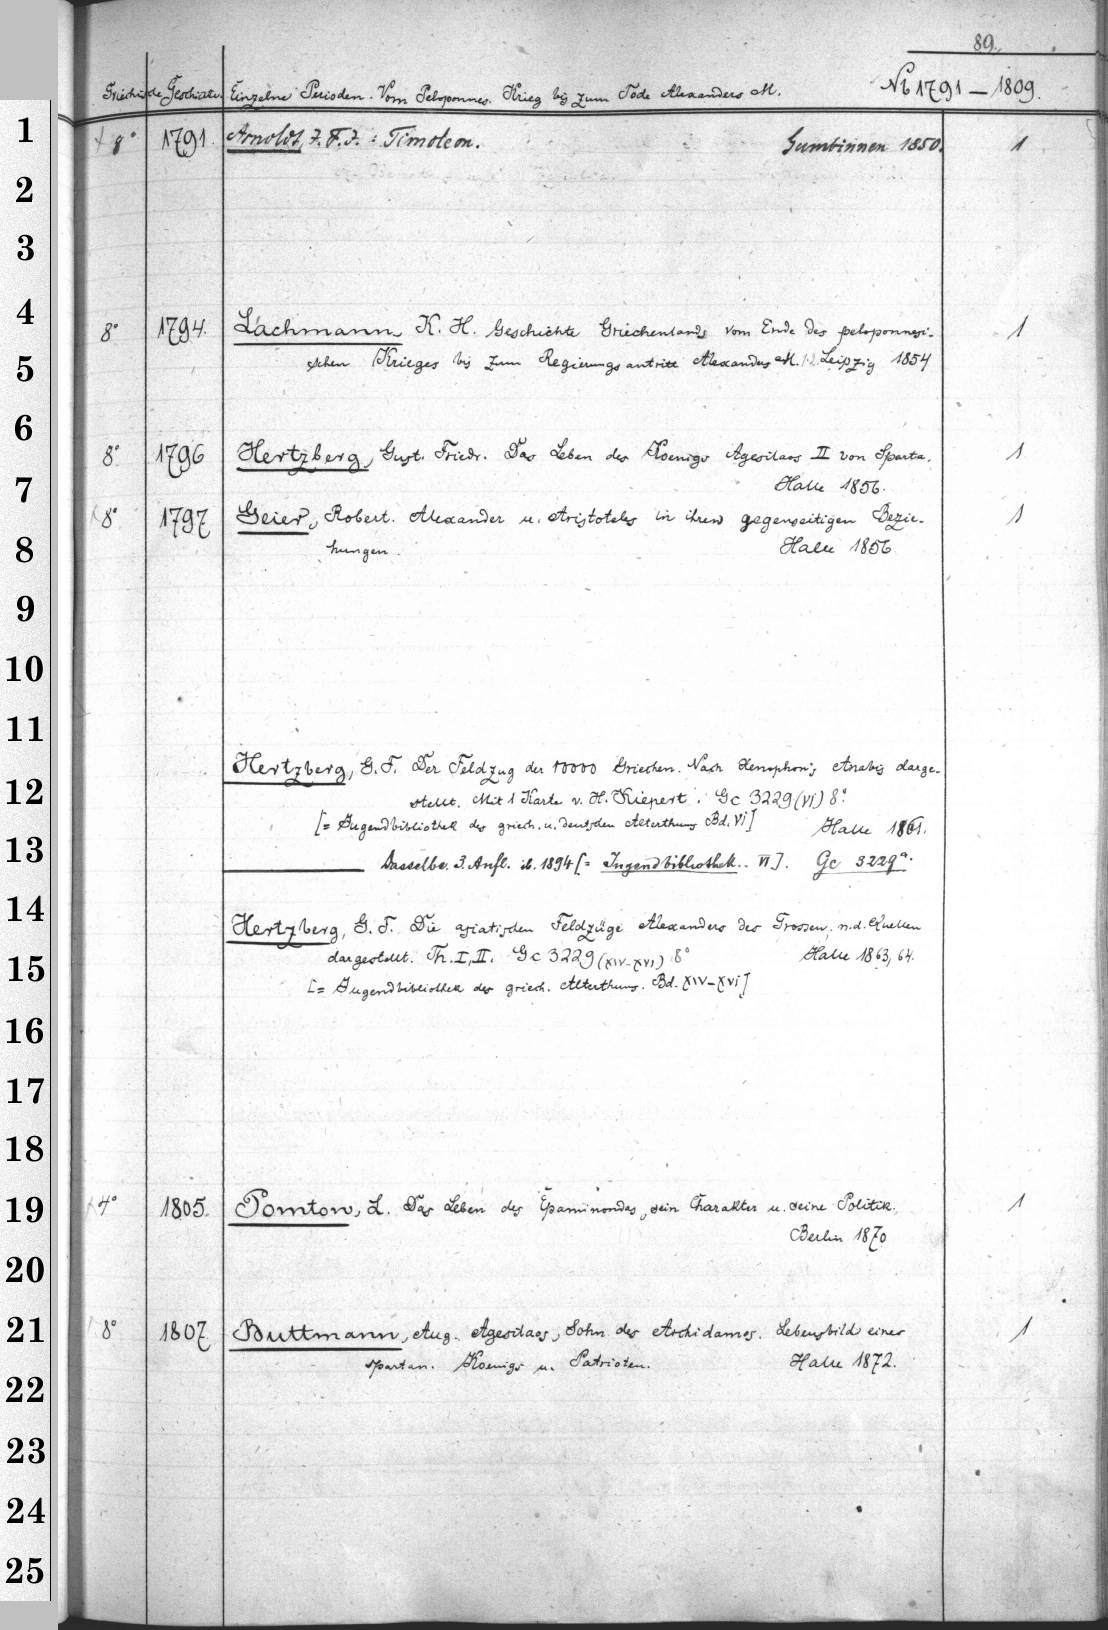 89.
Griechische Geschichte. Einzelne Perioden. Vom Peloponnes. Krieg bis zum Tode Alexanders M. No 1791 – 1809.
1 8° 1791. Arnoldt, J. F. J. : Timoleon. Gumbinnen 1850. 1
2
3
4 8° 1794. Lachmann, K. H. Geschichte Griechenlands vom Ende des peloponnesi- 1
5 schen Krieges bis zum Regierungsantritt Alexanders M. 1.2. Leipzig 1854
6 8° 1796 Hertzberg, Gust. Friedr. Das Leben des Koenigs Agesilaos II von Sparta. 1
7 Halle 1856.
8° 1797 Geier, Robert. Alexander u. Aristoteles in ihren gegenseitigen Bezie- 1
8 hungen. Halle 1856
9
10
11
Hertzberg, G. F. Der Feldzug der 10000 Griechen. Nach Xenophon's Anabis darge-
12 stellt. Mit 1 Karte v. H. Kiepert. Gc 3229 (VI) 8°.
[= Jugendbibliothek des griech. u. deutschen Alterthums Bd. VI] Halle 1861.
13 Dasselbe. 3. Aufl. ib. 1894 [= Jugendbibliothek.. VI]. Gc 3229a.
14 Hertzberg, G. F. Die asiatischen Feldzüge Alexanders des Grossen, n. d. Quellen
15 dargestellt. Th. I, II. Gc 3229 (XIV–XVI) 8° Halle 1863, 64.
[= Jugendbibliothek des griech. Alterthums. Bd. XIV–XVI]
16
17
18
19 4° 1805. Pomtow, L. Das Leben des Epaminondas, sein Charakter u. seine Politik. 1
Berlin 1870
20
21 8° 1807 Buttmann, Aug. Agesilaos, Sohn des Archidamos. Lebensbild eines 1
spartan. Koenigs u. Patrioten. Halle 1872.
22
23
24
25